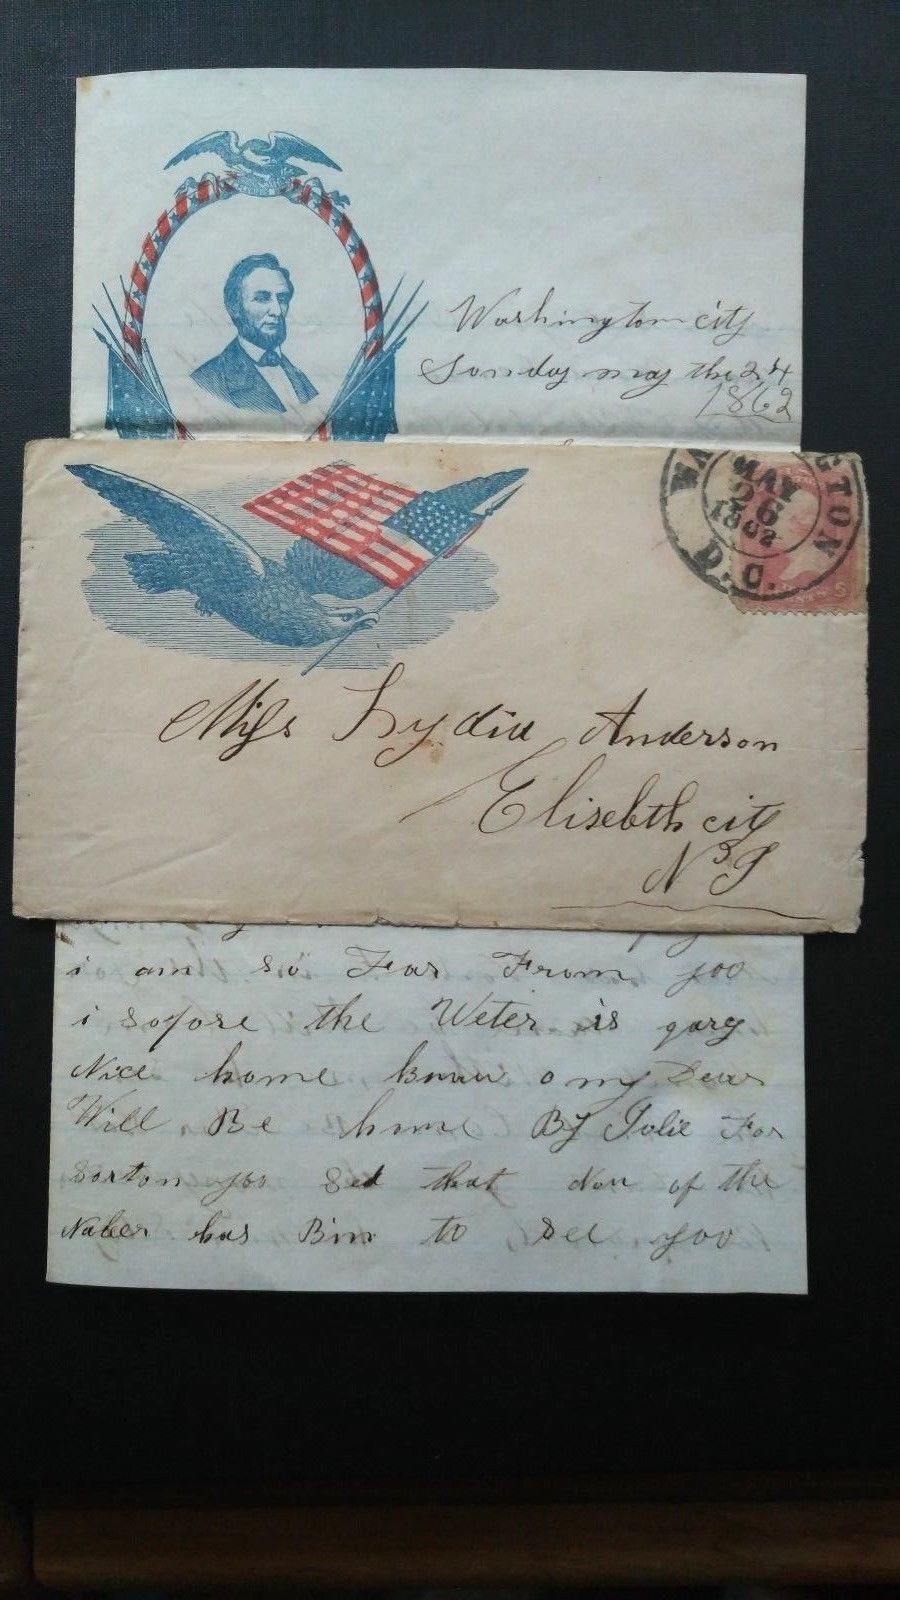 Washington city
Sonday may the 24
1862
WA GTON
MAY
26
1862
D.C.
Miss Lydia Anderson
Elisebth city
N J
i am so Fear From yoo
i sopore the Weter is
Nice home know o my Dear
Will Be home By Julie For
sorton yoo sed that Non of the
Naber has Bin to see yoo